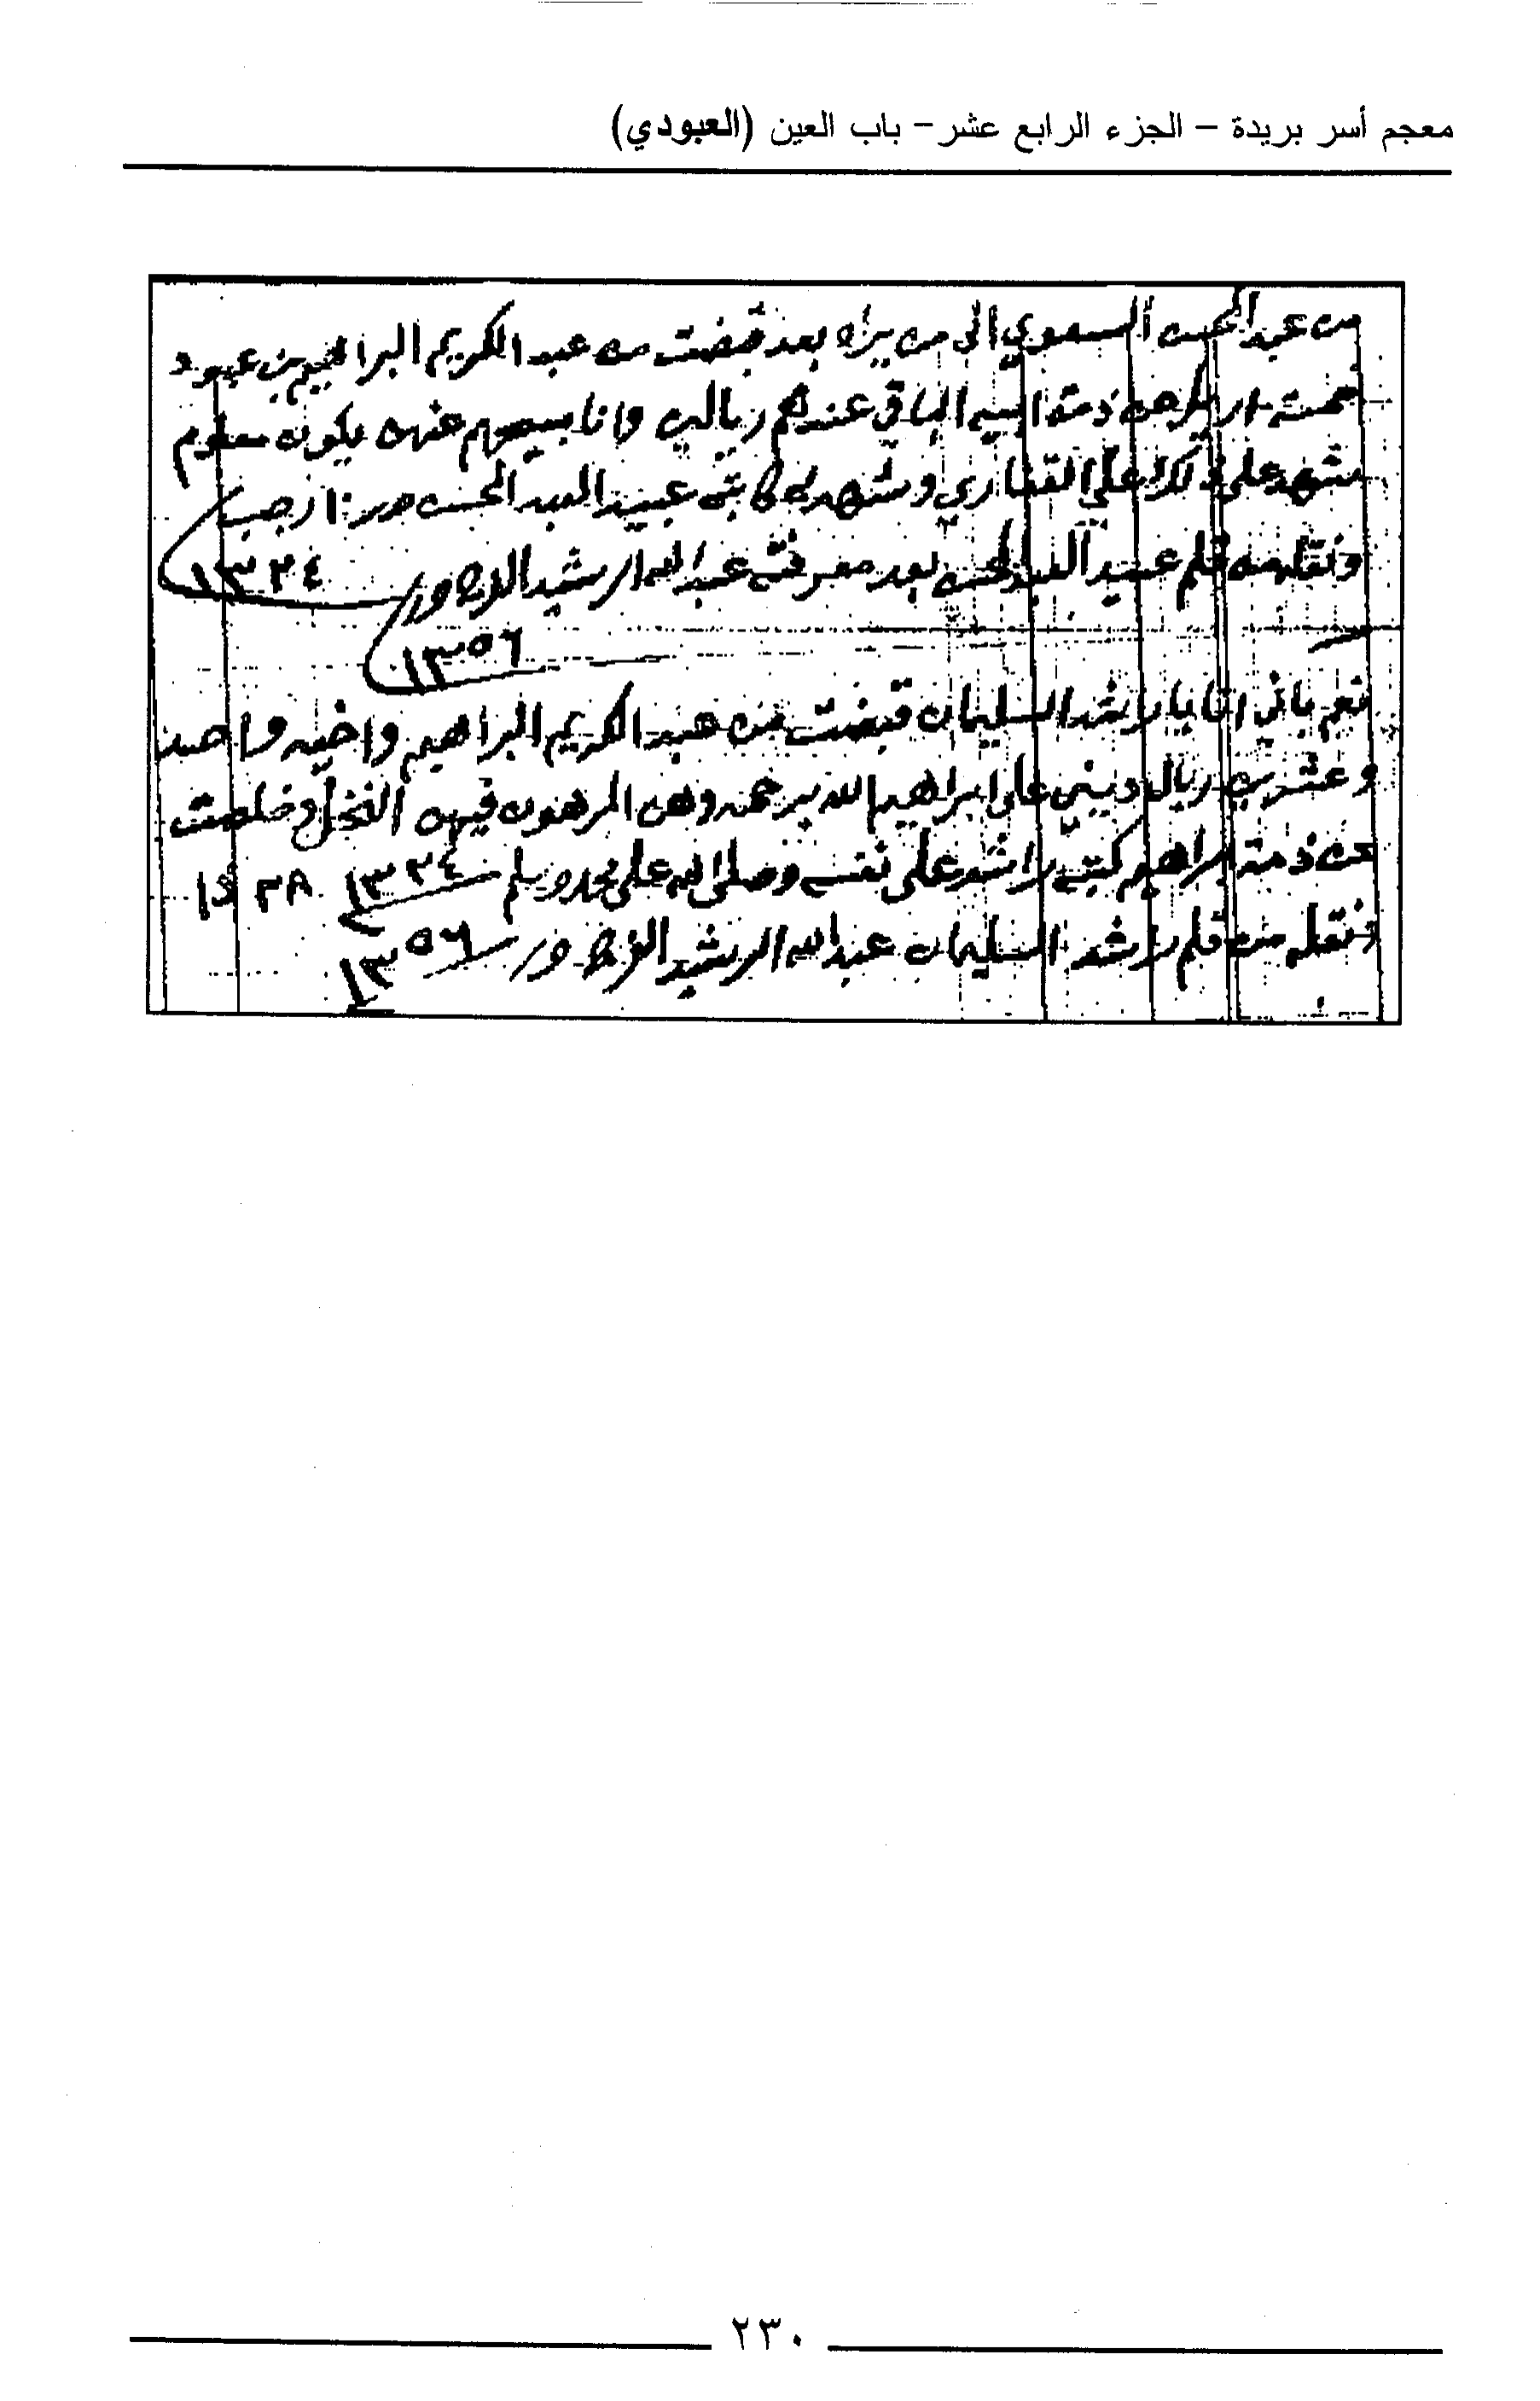 معجم أسر بريدة – الجزء الرابع عشر – باب العين (العبودي)
من عبدالمحسن السموي الى من يراه بعد قبضت من عبد الكريم البراهيم بن عبود
خمسة اريل من ذمة ابيه الباقي عندهم ريالين وانا بسيحهم عنهن يكون معلوم
شهد على ذلك علي القفاري وشهد به كاتبه عبيد العبد المحسن رجب
١٣٣٤
ونقله من قلم عبيد العبدالمحسن بعد معرفتي عبدالله الرشيد الفرج
١٣٥٦
نعم باني انا يا راشد السليمان قبضت من عبد الكريم البراهيم واخيه واحد
وعشرين ريال ديني على ابراهيم الله يرحمه وهن المرهون فيهن النخل وخلصت
من ذمة ابراهيم كتبه راشد على نفسه وصلى الله على محمد وسلم ١٣٣٤
ونقله من قلم راشد السليمان عبدالله الرشيد الفرج ١٣٥٦
٢٣٠